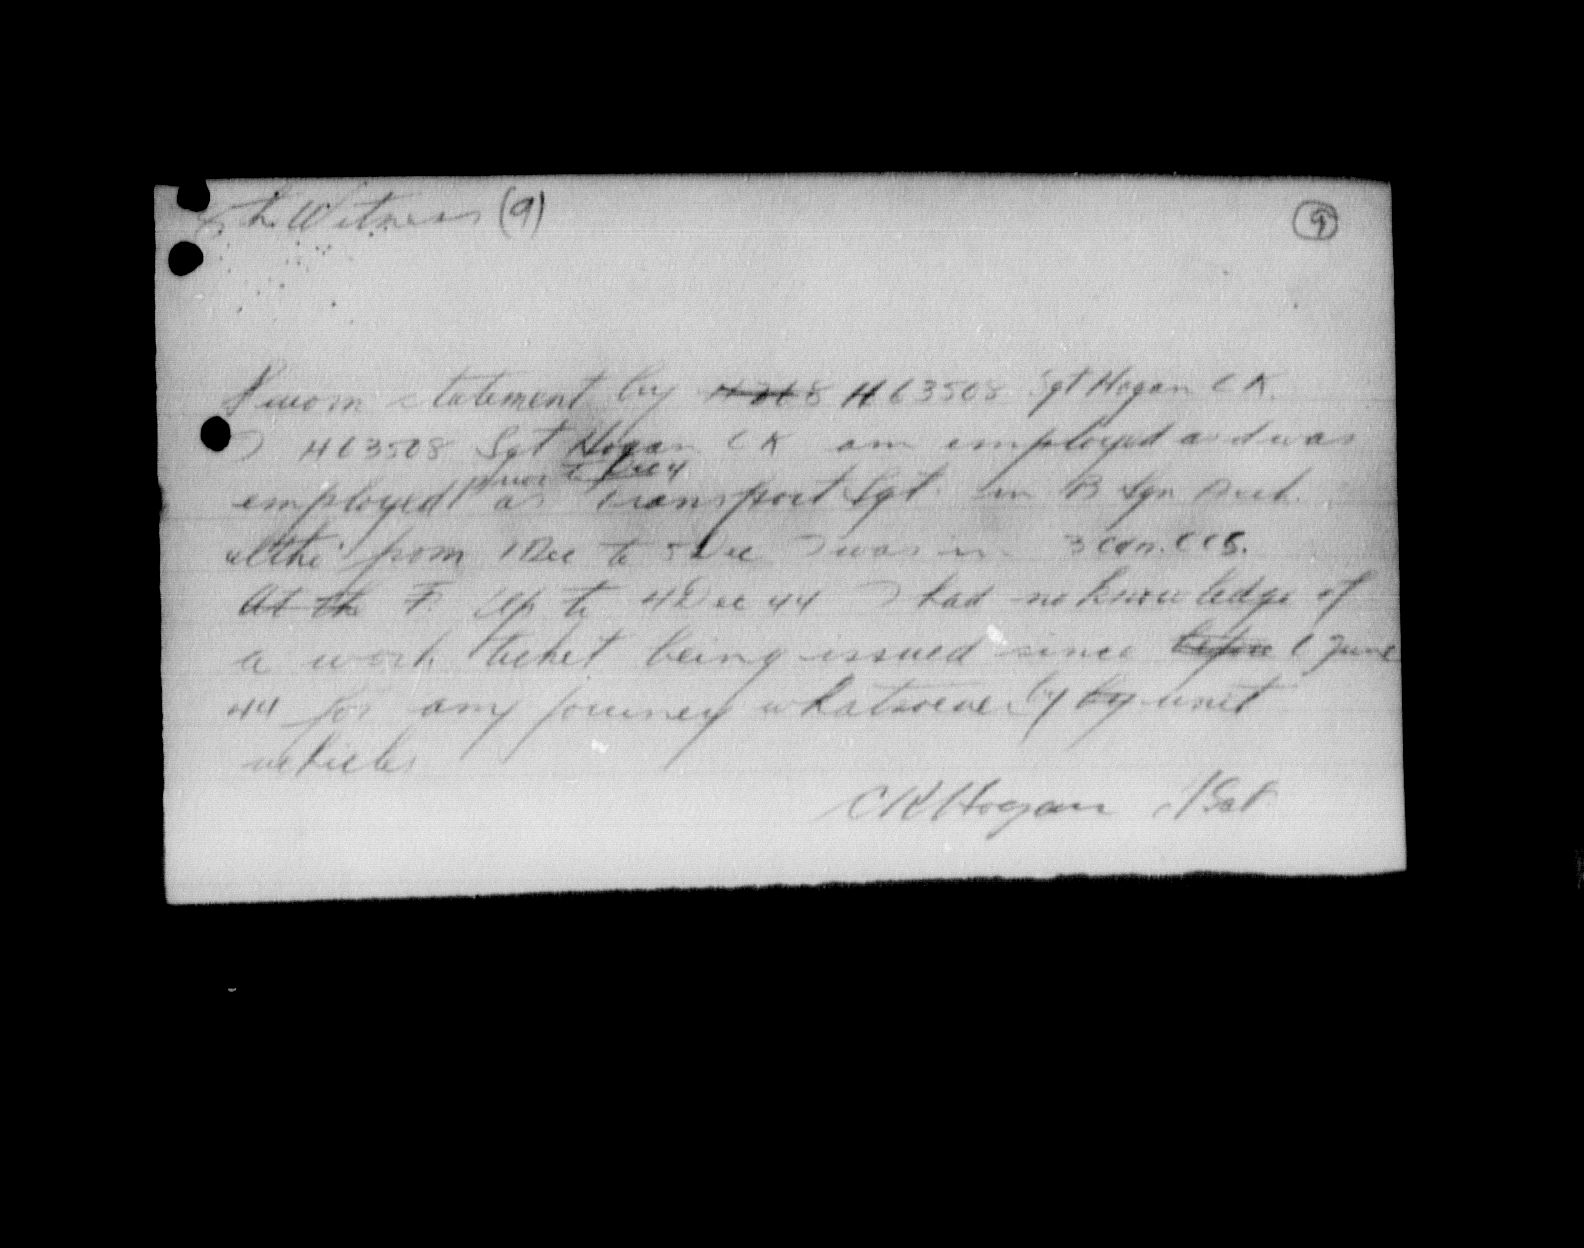 Witness (9)
9
Sworn statement by H63508 Sgt Hogan C K.
I H63508 Sgt Hogan C K am employed and was
prior to Dec 4
employed as Transport Sgt. in B Sqn
from 1 Dec to 5 Dec I was in 3 Can. CCS.
At the F. Up to 4 Dec 44 I had no knowledge of
a work ticket being issued since before 6 June
44 for any journey whatsoever by by unit
vehicles
CK Hogan Sgt